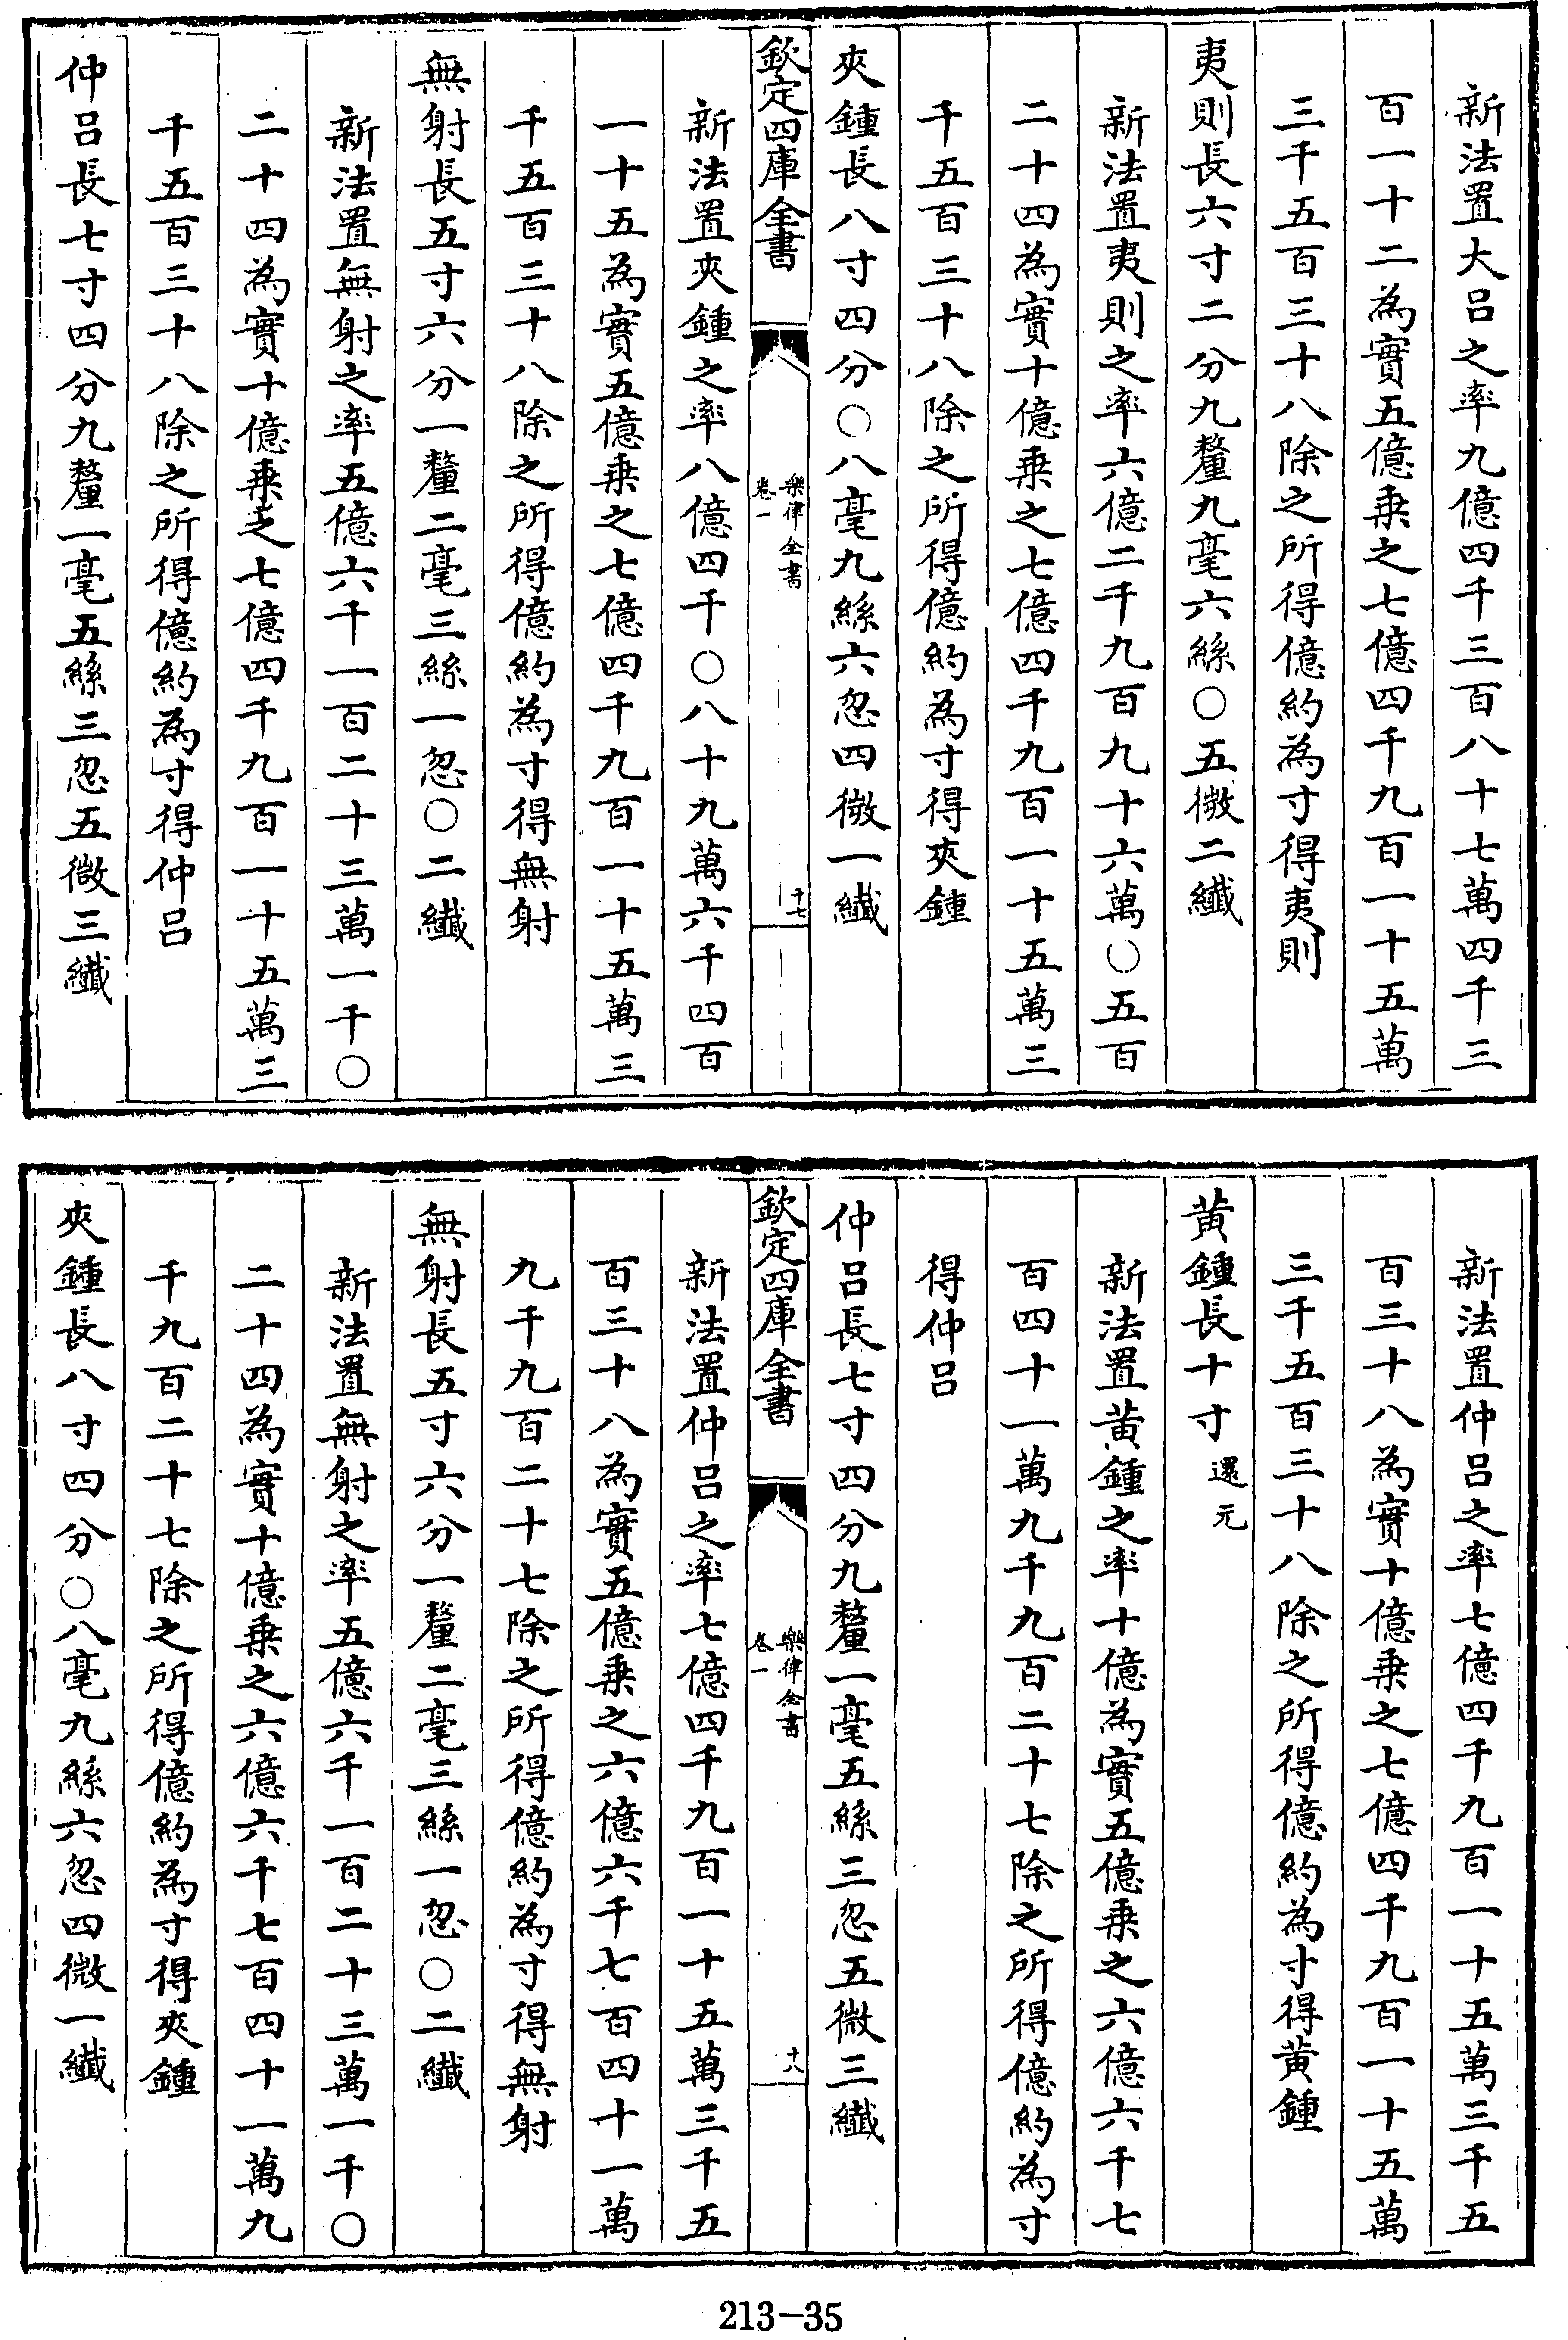 新法置大呂之率九億四千三百八十七萬四千三
百一十二為實五億乗之七億四千九百一十五萬
三千五百三十八除之所得億約為寸得夷則
夷則長六寸二分九釐九毫六絲〇五微二纖
新法置夷則之率六億二千九百九十六萬〇五百
二十四為實十億乗之七億四千九百一十五萬三
千五百三十八除之所得億約為寸得夾鍾
夾鍾長八寸四分〇八毫九絲六忽四微一纖
欽定四庫全書
樂律全書
卷一
十七
新法置夾鍾之率八億四千〇八十九萬六千四百
一十五為實五億乗之七億四千九百一十五萬三
千五百三十八除之所得億約為寸得無射
無射長五寸六分一釐二毫三絲一忽〇二纖
新法置無射之率五億六千一百二十三萬一千〇
二十四為實十億乗之七億四千九百一十五萬三
千五百三十八除之所得億約為寸得仲呂
仲呂長七寸四分九釐一毫五絲三忽五微三纖
新法置仲呂之率七億四千九百一十五萬三千五
百三十八為實十億乗之七億四千九百一十五萬
三千五百三十八除之所得億約為寸得黄鍾
黄鍾長十寸還元
新法置黄鍾之率十億為實五億乗之六億六千七
百四十一萬九千九百二十七除之所得億約為寸
得仲呂
仲呂長七寸四分九釐一毫五絲三忽五微三纖
欽定四庫全書
樂律全書
卷一
十八
新法置仲呂之率七億四千九百一十五萬三千五
百三十八為實五億乗之六億六千七百四十一萬
九千九百二十七除之所得億約為寸得無射
無射長五寸六分一釐二毫三絲一忽〇二纖
新法置無射之率五億六千一百二十三萬一千〇
二十四為實十億乗之六億六千七百四十一萬九
千九百二十七除之所得億約為寸得夾鍾
夾鍾長八寸四分〇八毫九絲六忽四微一纖
213-35